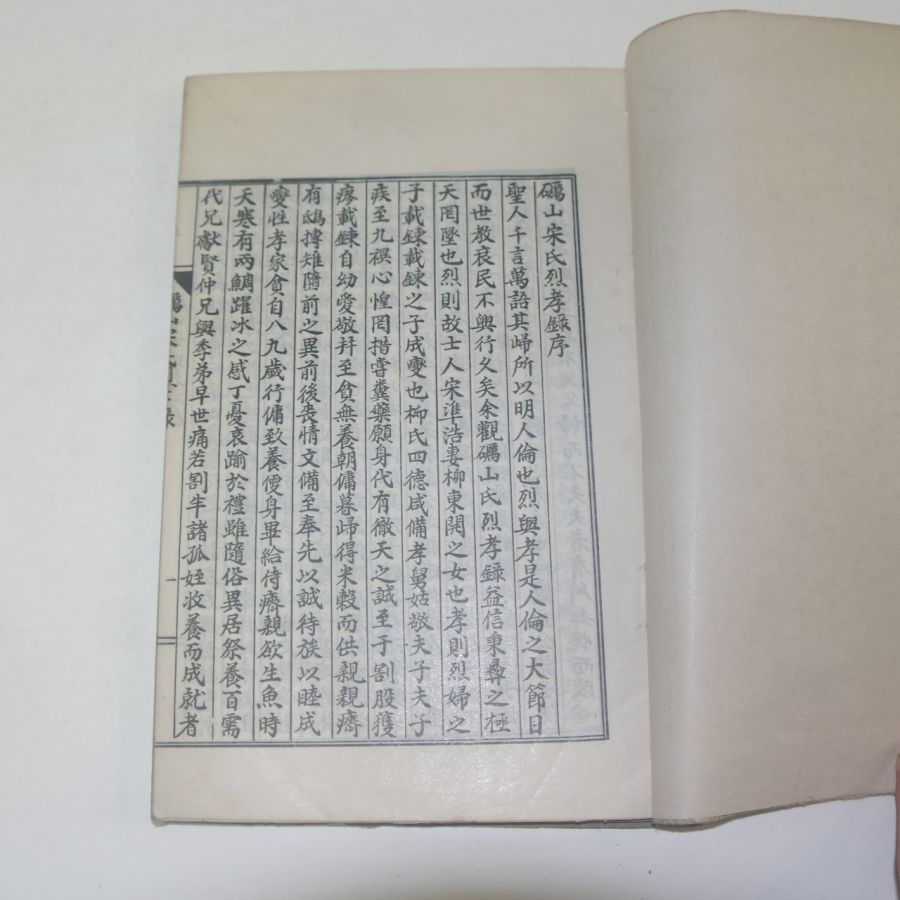 礪山宋氏烈孝錄序
聖人千言萬語其歸所以明人倫也烈與孝是人倫之大節目
而世敎衰民不興行久矣余觀礪山氏烈孝錄益信秉彝之極
天罔墜也烈則故士人宋準浩妻柳東開之女也孝則烈婦之
子載鍊載鍊之子成燮也柳氏四德咸備孝舅姑敬夫子夫子
疾至九禩心惶罔措嘗糞藥願身代有徹天之誠至于割股獲
瘳載鍊自幼愛敬幷至貧無養朝傭暮歸得米穀而供親親癠
有鴟搏雉隨前之異前後喪情文備至奉先以誠待族以睦成
燮性孝家貧自八九歲行傭致養便身畢給侍癠親欲生魚時
天寒有兩鯛躍冰之感丁憂哀踰於禮雖隨俗異居祭養百需
代兄獻賢仲兄與季弟早世痛若割半諸孤姪收養而成就者
一